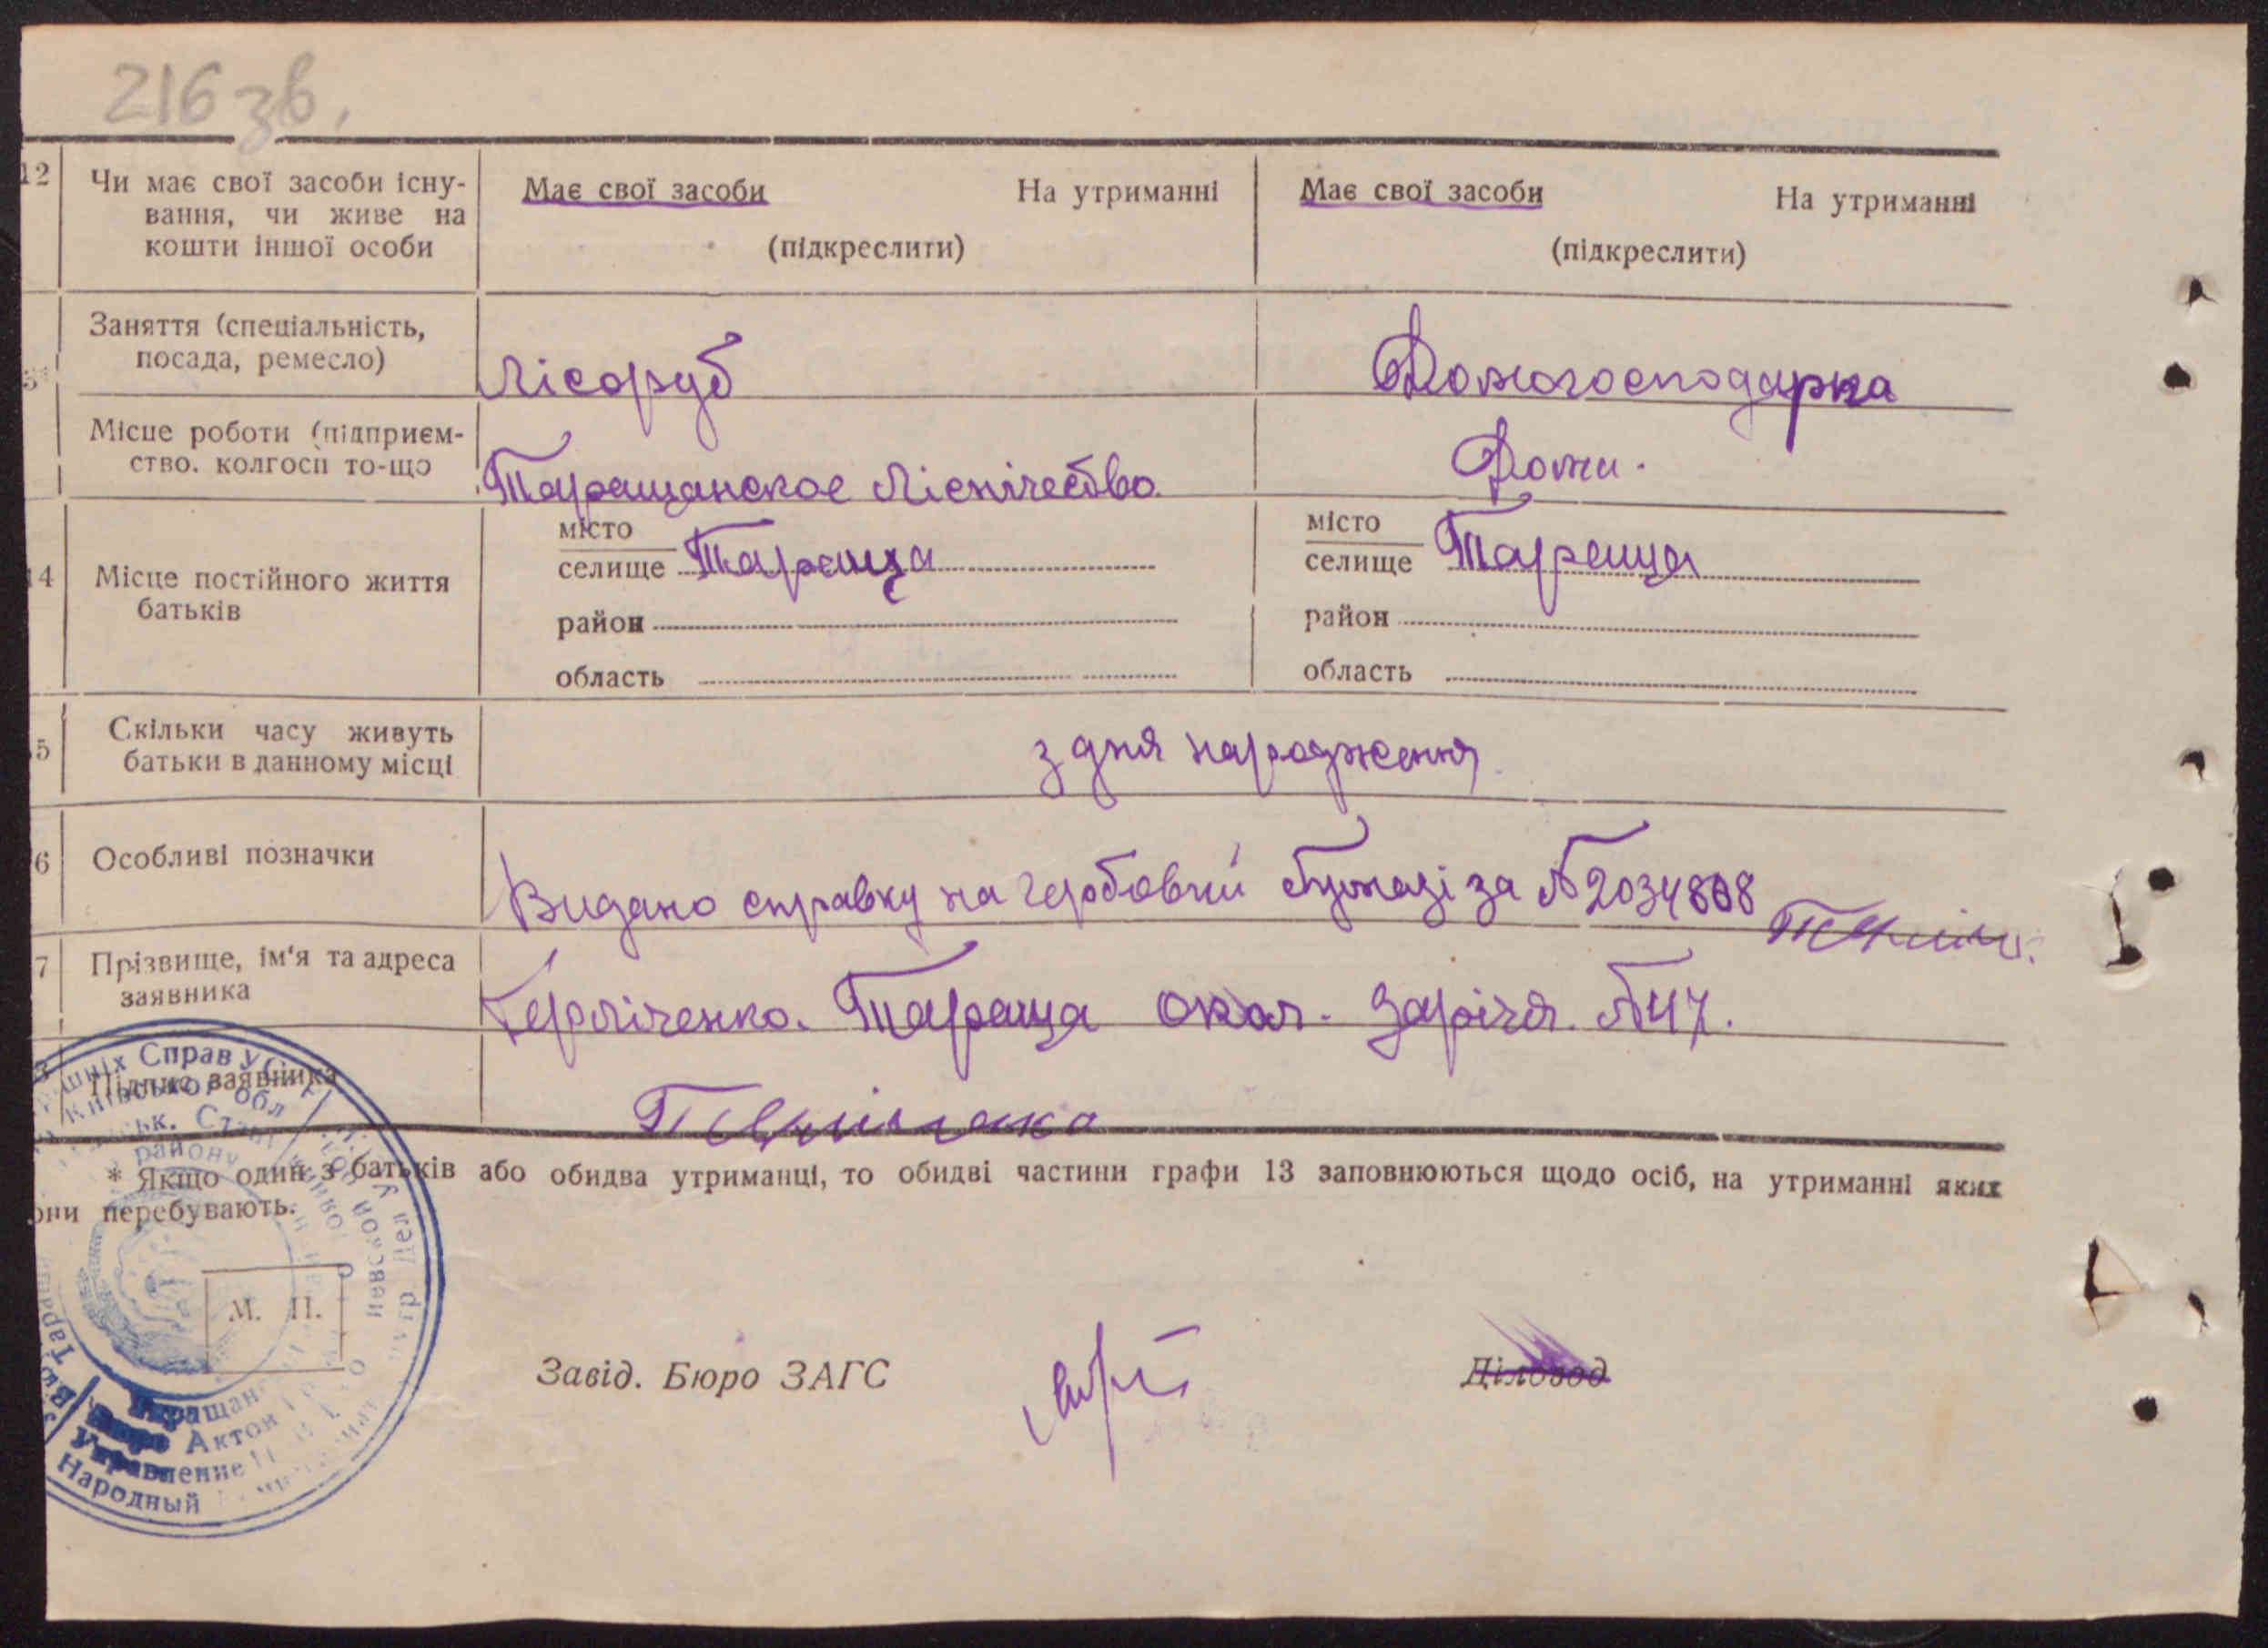 216 зв.
12 Чи має свої засоби існу-
вання, чи живе на
кошти іншої особи
Має свої засоби На утриманні
(підкреслити)
Має свої засоби На утриманні
(підкреслити)
Заняття (спеціальність,
посада, ремесло)
Лісоруб
Домогосподарка
Місце роботи (підприєм-
ство. колгосп то-що
Таращанское Лісничество
Дома.
14 Місце постійного життя
батьків
місто
селище Тараща
район
область
місто
селище Тараща
район
область
5 Скільки часу живуть
батьки в данному місці
з дня народження
6 Особливі позначки
Видано справку на гербовий бумазі за №2034808
7 Прізвище, ім'я та адреса
заявника
Герліченко. Тараща окол. Заріччя №47.
Підпис заявника
* Якщо один з батьків або обидва утриманці, то обидві частини графи 13 заповнюються щодо осіб, на утриманні яких
они перебувають.
М. П.
Завід. Бюро ЗАГС
Діловод
Справ
Київської Обл
району
Актов
Управление
Народный